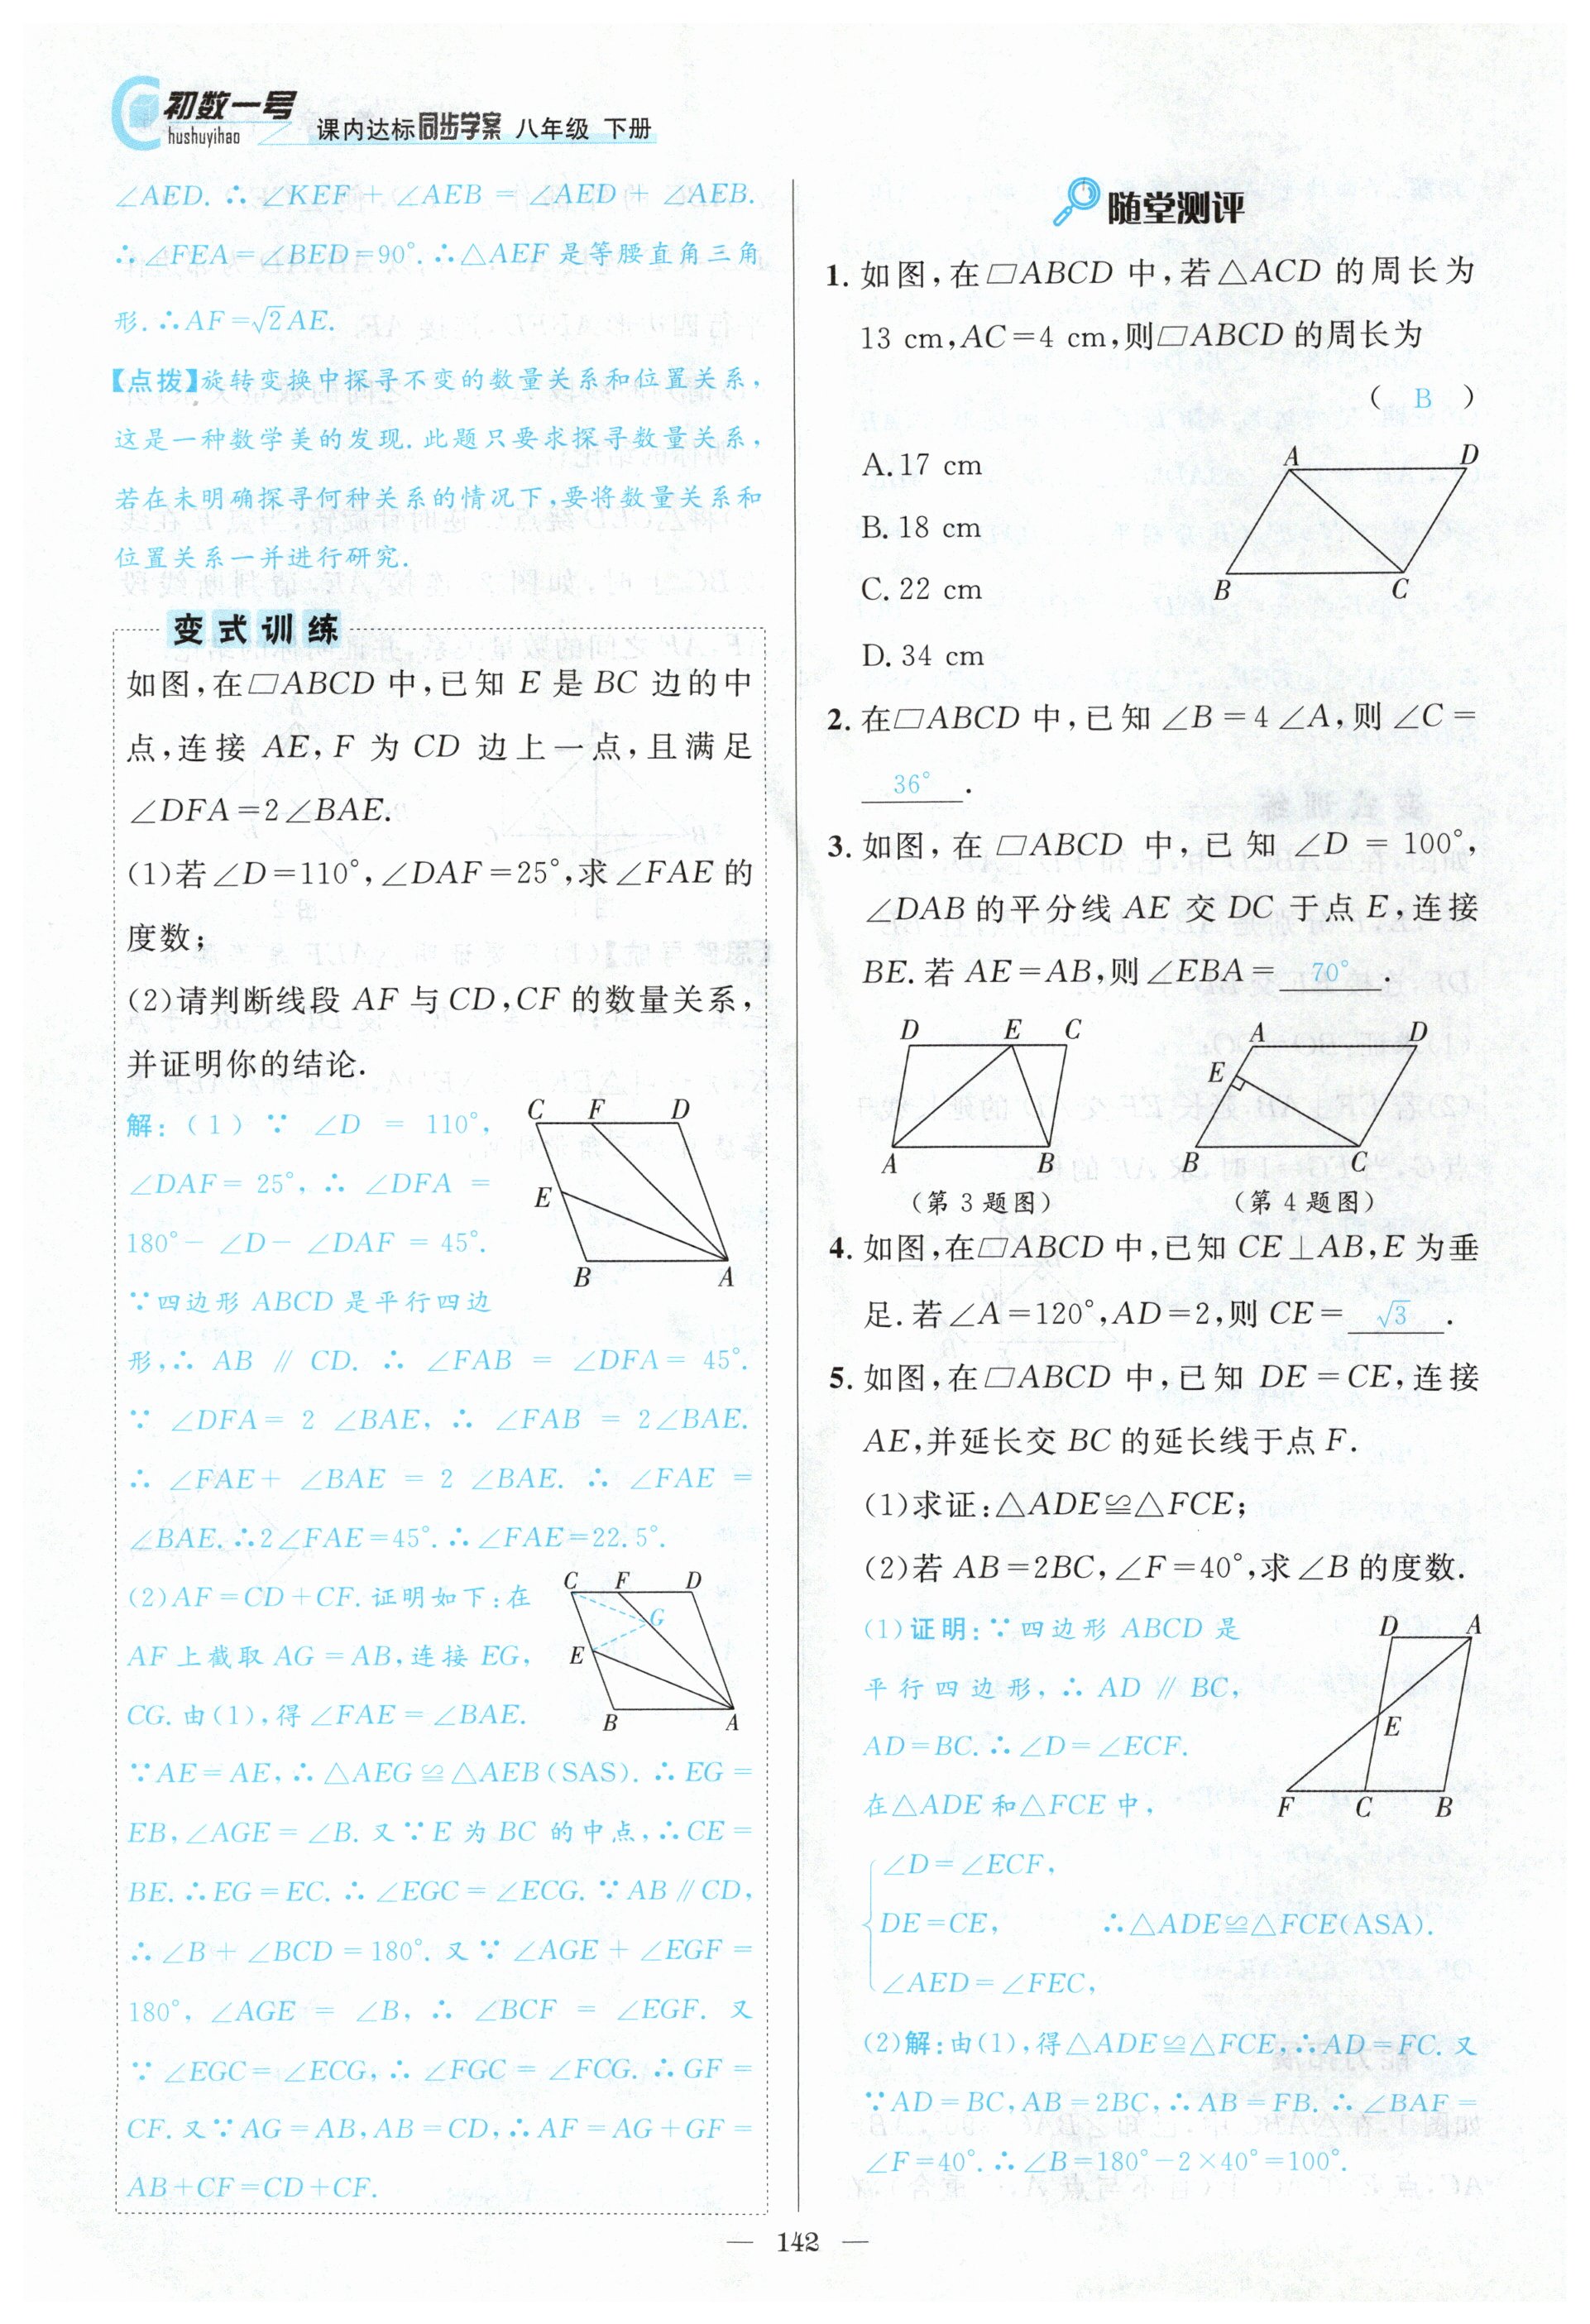 初数一号
hushuyihao
课内达标同步学案 八年级 下册
∠AED. ∴ ∠KEF + ∠AEB = ∠AED + ∠AEB.
∴ ∠FEA=∠BED=90°. ∴△AEF 是等腰直角三角
形. ∴AF=√2AE.
【点拨】旋转变换中探寻不变的数量关系和位置关系,
这是一种数学美的发现. 此题只要求探寻数量关系,
若在未明确探寻何种关系的情况下,要将数量关系和
位置关系一并进行研究.
变式训练
如图,在▱ABCD 中,已知 E 是 BC 边的中
点,连接 AE, F 为 CD 边上一点,且满足
∠DFA=2∠BAE.
(1)若∠D=110°,∠DAF=25°,求∠FAE 的
度数;
(2)请判断线段 AF 与 CD,CF 的数量关系,
并证明你的结论.
解:(1) ∵ ∠D = 110°,
∠DAF= 25°, ∴ ∠DFA =
180°- ∠D- ∠DAF = 45°.
∵四边形 ABCD 是平行四边
C F D
E
B A
形,∴ AB ∥ CD. ∴ ∠FAB = ∠DFA= 45°.
∵ ∠DFA= 2 ∠BAE, ∴ ∠FAB = 2∠BAE.
∴ ∠FAE+ ∠BAE = 2 ∠BAE. ∴ ∠FAE =
∠BAE. ∴2∠FAE=45°. ∴∠FAE=22.5°.
(2)AF=CD+CF. 证明如下:在
AF 上截取 AG=AB,连接 EG,
CG. 由(1),得∠FAE=∠BAE.
C F D
G
E
B A
∵AE=AE,∴△AEG≌△AEB(SAS). ∴EG=
EB,∠AGE=∠B. 又∵E 为 BC 的中点,∴CE=
BE. ∴EG=EC. ∴∠EGC=∠ECG. ∵AB∥CD,
∴∠B+∠BCD=180°. 又∵∠AGE+∠EGF=
180°, ∠AGE = ∠B, ∴ ∠BCF = ∠EGF. 又
∵ ∠EGC= ∠ECG, ∴ ∠FGC= ∠FCG. ∴GF=
CF. 又∵AG=AB,AB=CD,∴AF=AG+GF=
AB+CF=CD+CF.
随堂测评
1. 如图,在▱ABCD 中,若△ACD 的周长为
13 cm,AC=4 cm,则▱ABCD 的周长为
( B )
A. 17 cm
B. 18 cm
C. 22 cm
D. 34 cm
A D
B C
2. 在▱ABCD 中,已知∠B=4∠A,则∠C=
36°.
3. 如图,在 ▱ABCD 中,已知 ∠D = 100°,
∠DAB 的平分线 AE 交 DC 于点 E,连接
BE. 若 AE=AB,则∠EBA= 70°.
D E C
A B
(第 3 题图)
A D
E
B C
(第 4 题图)
4. 如图,在▱ABCD 中,已知 CE⊥AB,E 为垂
足. 若∠A=120°,AD=2,则 CE= √3.
5. 如图,在▱ABCD 中,已知 DE=CE,连接
AE,并延长交 BC 的延长线于点 F.
(1)求证:△ADE≌△FCE;
(2)若 AB=2BC,∠F=40°,求∠B 的度数.
(1)证明:∵四边形 ABCD 是
平行四边形,∴ AD ∥ BC,
AD=BC. ∴∠D=∠ECF.
在△ADE 和△FCE 中,
D A
E
F C B
∠D=∠ECF,
DE=CE, ∴△ADE≌△FCE(ASA).
∠AED=∠FEC,
(2)解:由(1),得△ADE≌△FCE,∴AD=FC. 又
∵AD=BC,AB=2BC,∴AB=FB. ∴∠BAF=
∠F=40°. ∴∠B=180°-2×40°=100°.
— 142 —